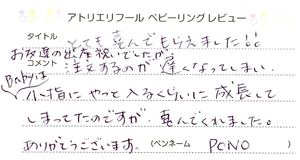 アトリエリフール ベビーリング レビュー
タイトル
とても喜んでもらえました!!
お友達の出産祝いでしたが、
コメント
注文するのが遅くなってしまい
Babyは
小指にやっと入るくらいに成長して
しまってたのですが、喜んでくれました。
ありがとうございます。(ペンネーム PONO )